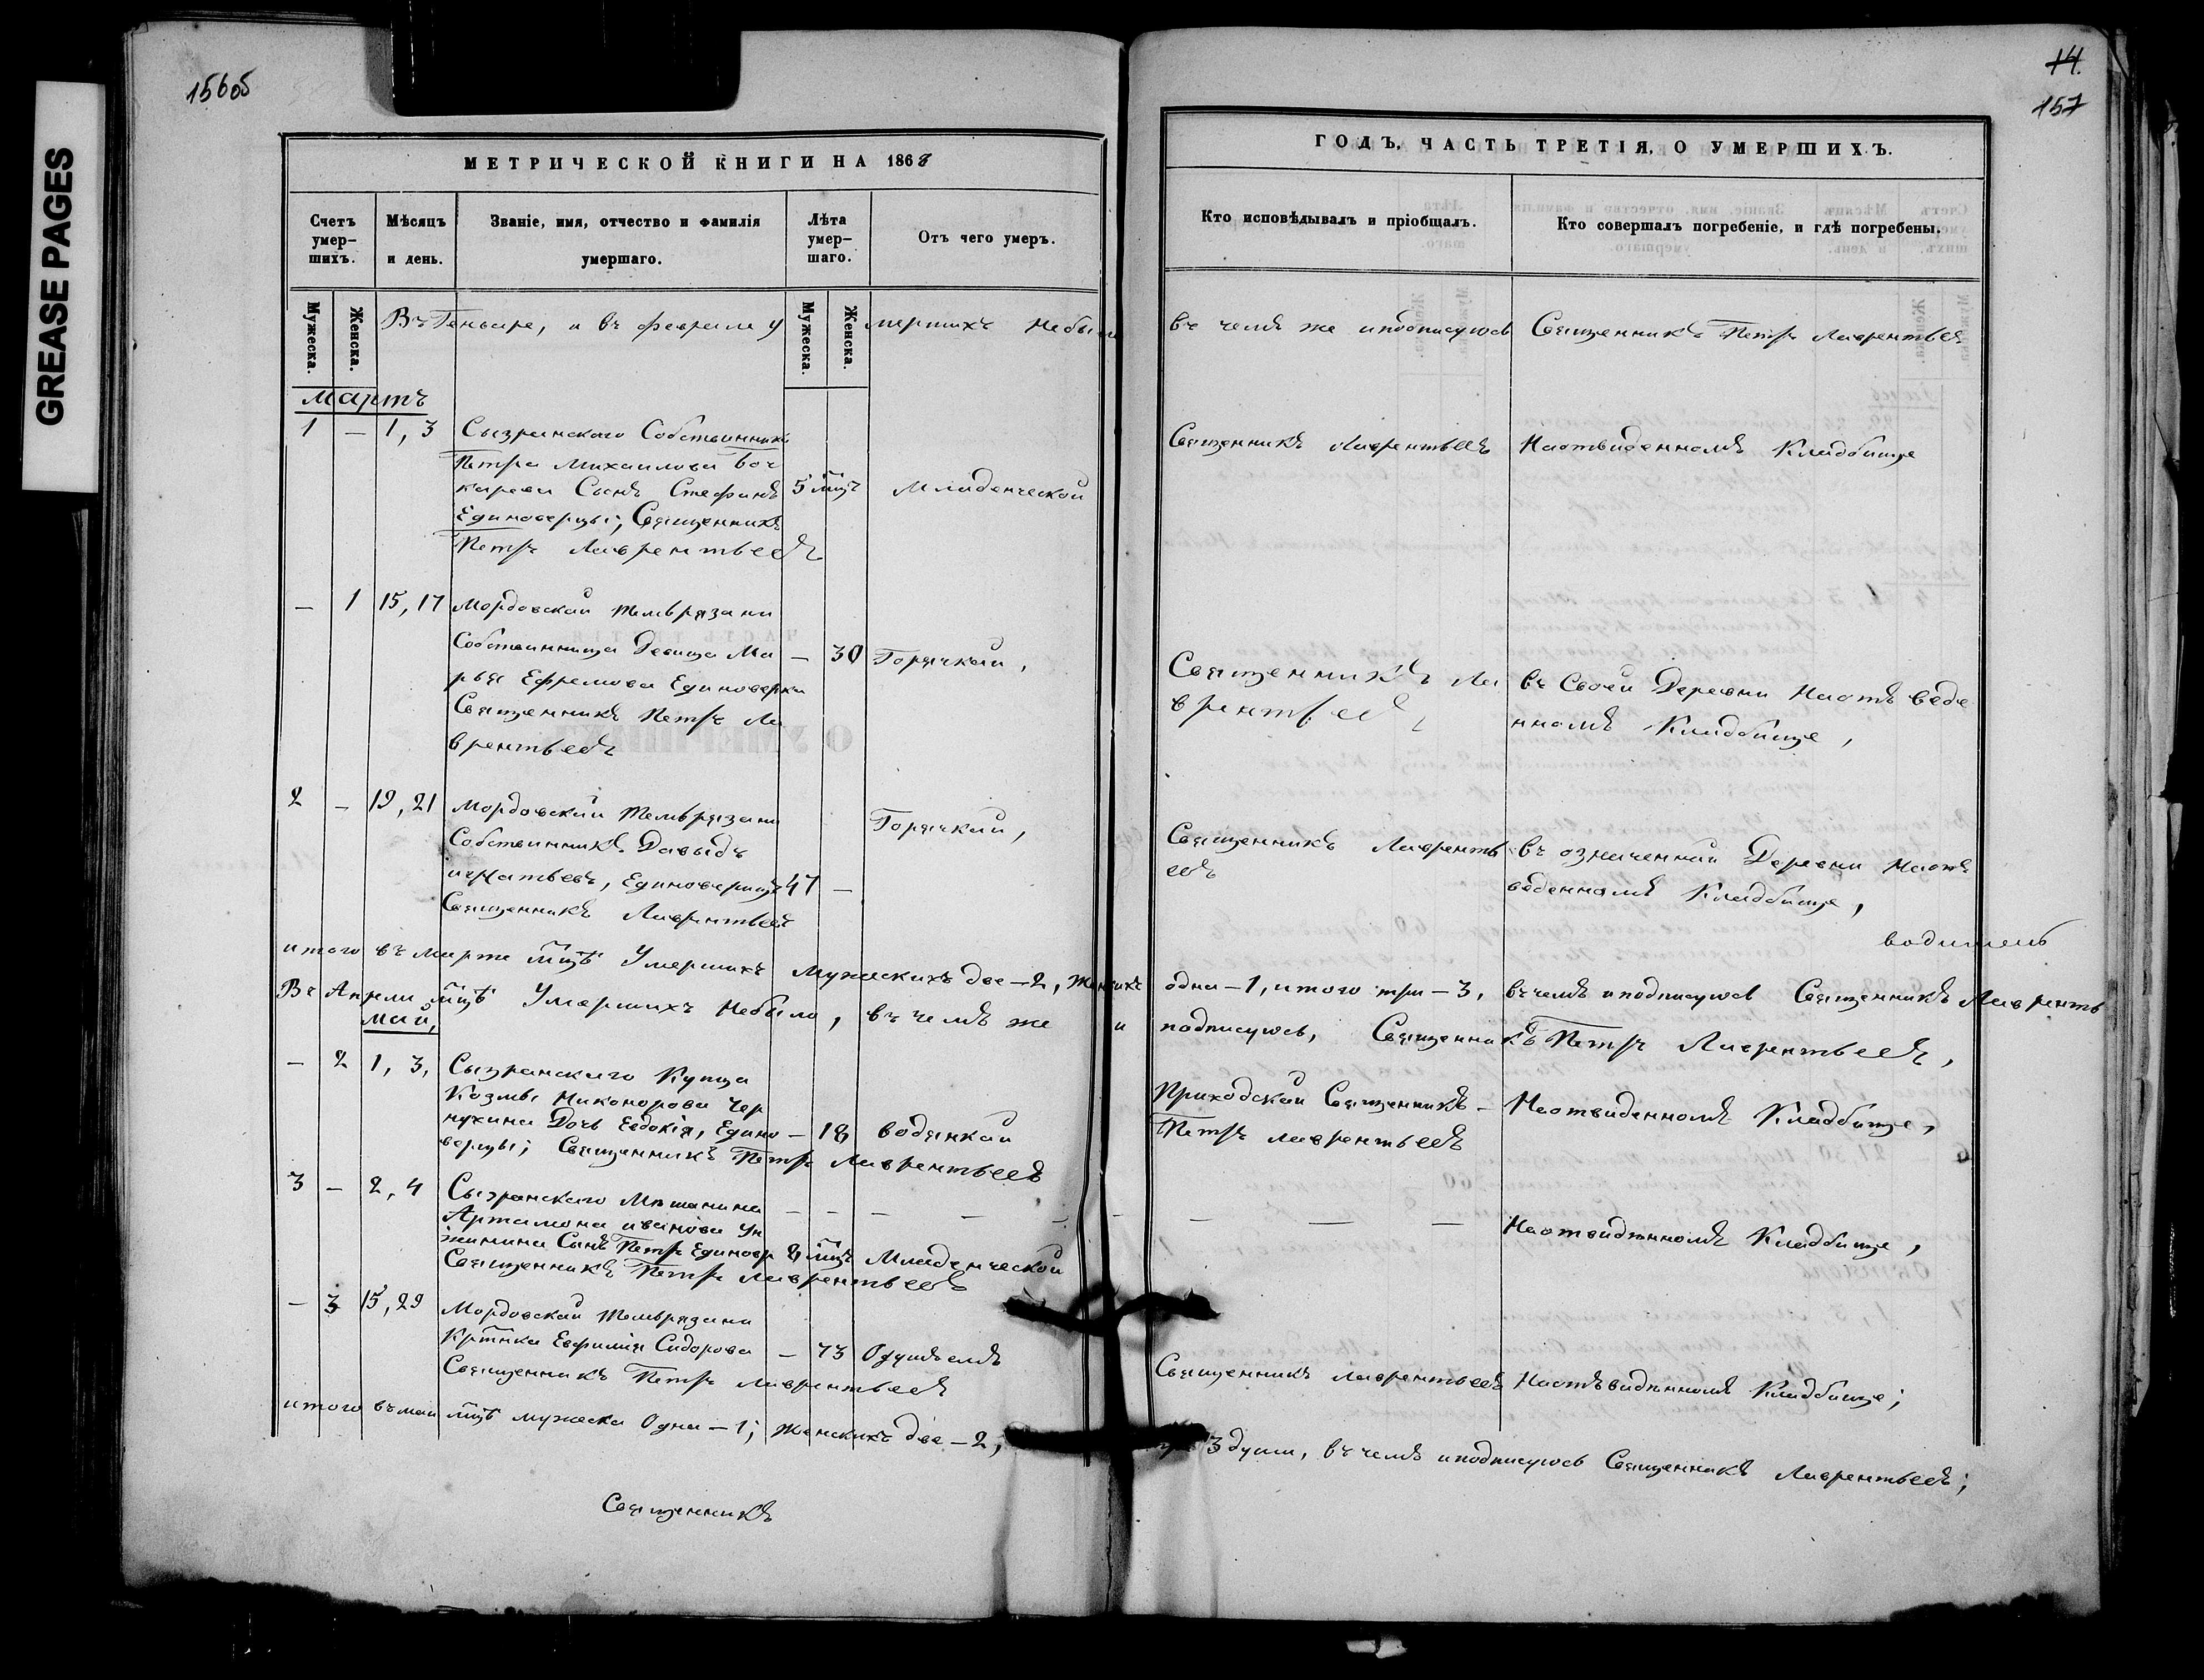 GREASE PAGES
156об
14.
157
МЕТРИЧЕСКОЙ КНИГИ НА 1868
ГОДЪ, ЧАСТЬ ТРЕТІЯ, О УМЕРШИХЪ.
Счетъ умер-
шихъ.
Мѣсяцъ
и день.
Званіе, имя, отчество и фамилія
умершаго.
Лѣта
умер-
шаго.
Отъ чего умеръ.
Кто исповѣдывалъ и пріобщалъ.
Кто совершалъ погребеніе, и гдѣ погребены.
Мужеска.
Женска.
Мужеска.
Женска.
Въ Генваре, и въ феврале умершихъ небыло въ чемъ же иподписуюсь Священникъ Петръ Лаврентьев
Мартъ
1 — 1, 3 Сызранскаго Собственника
Петра Михаилова Боч
карева Сынъ Стефанъ 5 мцъ Младенческой
Единоверцы; Священникъ
Петръ Лаврентьевъ
Священникъ Лаврентьевъ
Наотвиденномъ Кладбище
— 1 15, 17 Мордовской Темврязани
Собственница Девица Ма — 30 Горячкой,
рья Ефремова Единоверка
Священникъ Петръ Ла
врентьевъ
Священникъ Ла
врентьевъ,
въ Своей Деревни Наотъведе
нномъ Кладбище,
2 — 19, 21 Мордовской Темврязани
Горячкой,
Собственникъ Давыдъ
игнатьевъ, Единоверецъ 47 —
Священникъ Лаврентьевъ
Священникъ Лавренть
евъ
въ означенной Деревни Наотъ
веденномъ Кладбище,
итого въ марте мцѣ Умершихъ Мужескихъ две — 2, Женскихъ одна — 1, итого три — 3, въ чемъ иподписуюсь Священникъ Лавренть
Въ Апрели мцѣ Умершихъ небыло, въ чемъ же и подписуюсь, Священникъ Петръ Лаврентьевъ,
Май,
— 2 1, 3, Сызранскаго Купца
Козмы Никонорова Чер
нухина Дочь Евдокія, Едино — 18 водянкой
верцы; Священникъ Петръ Лаврентьевъ
Приходской Священникъ
Петръ Лаврентьевъ
Наотвиденномъ Кладбище,
3 — 2, 4 Сызранскаго Мѣщанина
Артамона иванова Ун
жинина Сынъ Петръ Единовер 8 мцъ Младенческой
Священникъ Петръ Лаврентьевъ
Наотвидѣнномъ Кладбище,
— 3 15, 29 Мордовской Темврязани
Крѣтнка Евфимия Сидорова — 73
Священникъ Петръ Лаврентьевъ
Священникъ Лаврентьевъ
Наотъвидѣнномъ Кладбище;
итого въ май мцѣ мужеска Одна — 1; Женскихъ две — 2, 3 души, въ чемъ иподписуюсь Священникъ Лаврентьевъ;
Священникъ